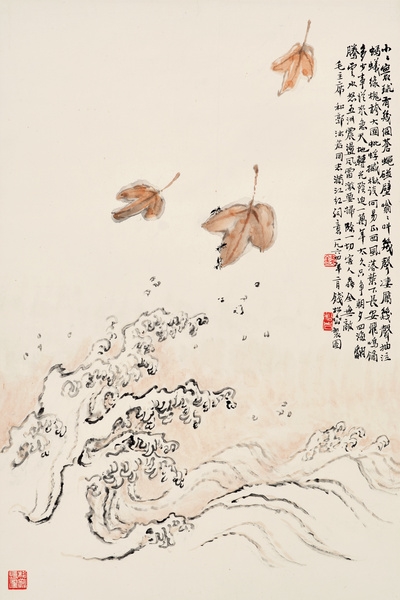 小〻寰球有幾個蒼蠅碰壁嗡〻叫幾聲凄厲幾聲抽泣
螞蟻緣槐誇大國蚍蜉撼樹談何易正西風落葉下長安飛鳴鏑
多少事從來急天地轉光陰迫一萬年太久只爭朝夕四海翻
騰雲水怒五洲震盪風雷激要掃除一切害人蟲全無敵
毛主席和郭沫若同志滿江紅詞意一九六四年二月錢松喦製圖